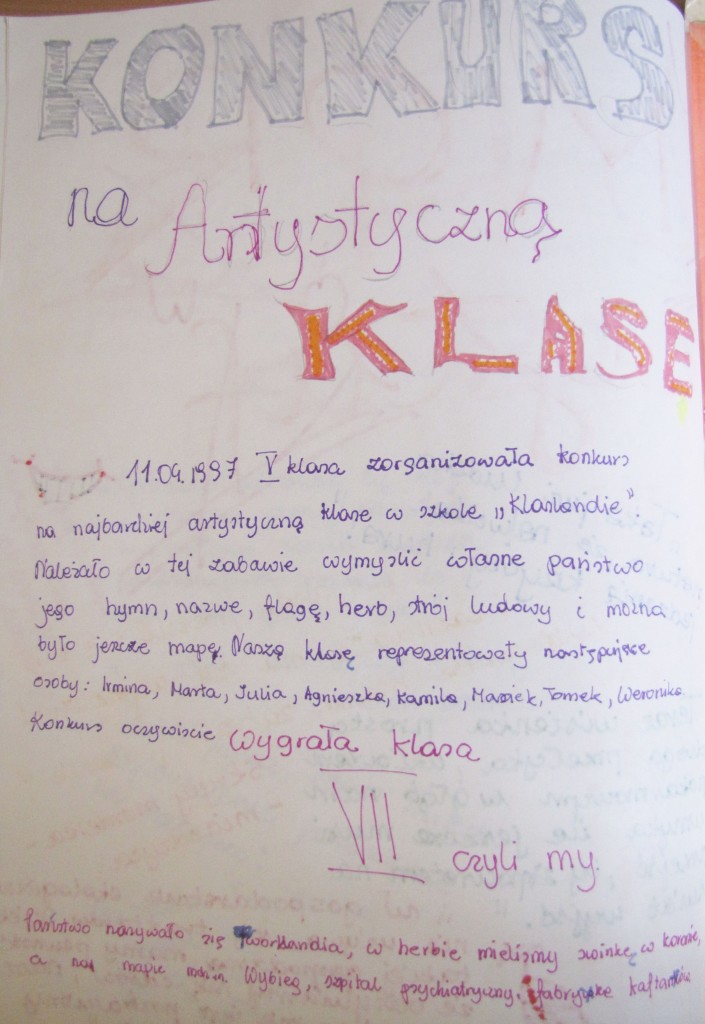 KONKURS
na Artystyczną
KLASĘ
11.04.1997 V klasa zorganizowała konkurs
na najbardziej artystyczną klasę w szkole "Klaslandię".
Należało w tej zabawie wymyślić własne państwo
jego hymn, nazwę, flagę, herb, strój ludowy i można
było jeszcze mapę. Naszą klasę reprezentowały następujące
osoby: Irmina, Marta, Julia, Agnieszka, Kamila, Maciek, Tomek, Weronika.
Konkurs oczywiście wygrała klasa
VII
czyli my.
Państwo nazywało się Tworklandia, w herbie mieliśmy świnkę w koronie,
a na mapie m.in. Wybieg, szpital psychiatryczny, fabrykę kaftaników